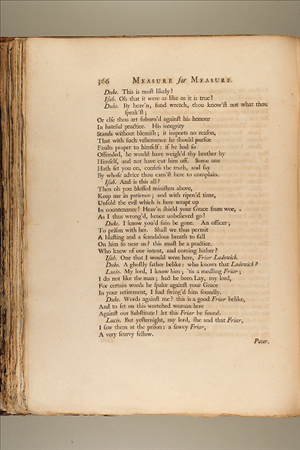 366 MEASURE for MEASURE.
Duke. This is most likely!
Isab. Oh that it were as like as it is true!
Duke. By heav'n, fond wretch, thou know'st not what thou
speak'st;
Or else thou art suborn'd against his honour
In hateful practice. His integrity
Stands without blemish; it imports no reason,
That with such vehemence he should pursue
Faults proper to himself: if he had so
Offended, he would have weigh'd thy brother by
Himself, and not have cut him off. Some one
Hath set you on, confess the truth, and say
By whose advice thou cam'st here to complain.
Isab. And is this all?
Then oh you blessed ministers above,
Keep me in patience; and with ripen'd time,
Unfold the evil which is here wrapt up
In countenance! Heav'n shield your Grace from woe,
As I thus wrong'd, hence unbelieved go!
Duke. I know you'd fain be gone. An officer;
To prison with her. Shall we thus permit
A blasting and a scandalous breath to fall
On him so near us? this must be a practice.
Who knew of your intent, and coming hither?
Isab. One that I would were here, Friar Lodowick.
Duke. A ghostly father belike: who knows that Lodowick?
Lucio. My lord, I know him; 'tis a medling Friar;
I do not like the man; had he been Lay, my lord,
For certain words he spake against your Grace
In your retirement, I had swing'd him soundly.
Duke. Words against me? this a good Friar belike,
And to set on this wretched woman here
Against our Substitute! let this Friar be found.
Lucio. But yesternight, my lord, she and that Friar,
I saw them at the prison: a sawcy Friar,
A very scurvy fellow.
Peter.